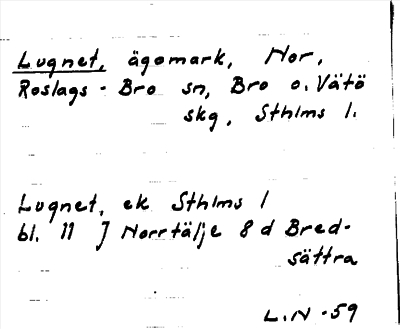 Lugnet, ägomark, Nor,
Roslags-Bro sn, Bro o. Vätö
skg, Sthlms l.
Lugnet, ek Sthlms l
bl. 11 J Norrtälje 8 d Bred-
sättra
L.N -59